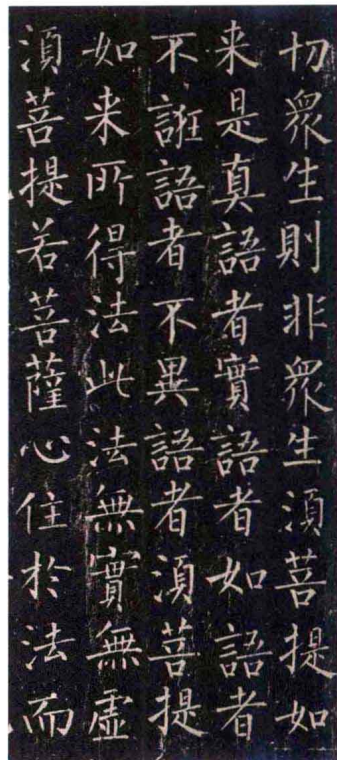 切衆生則非衆生湏菩提如
来是真語者實語者如語者
不誑語者不異語者湏菩提
如来所得法此法無實無虛
湏菩提若菩薩心住於法而